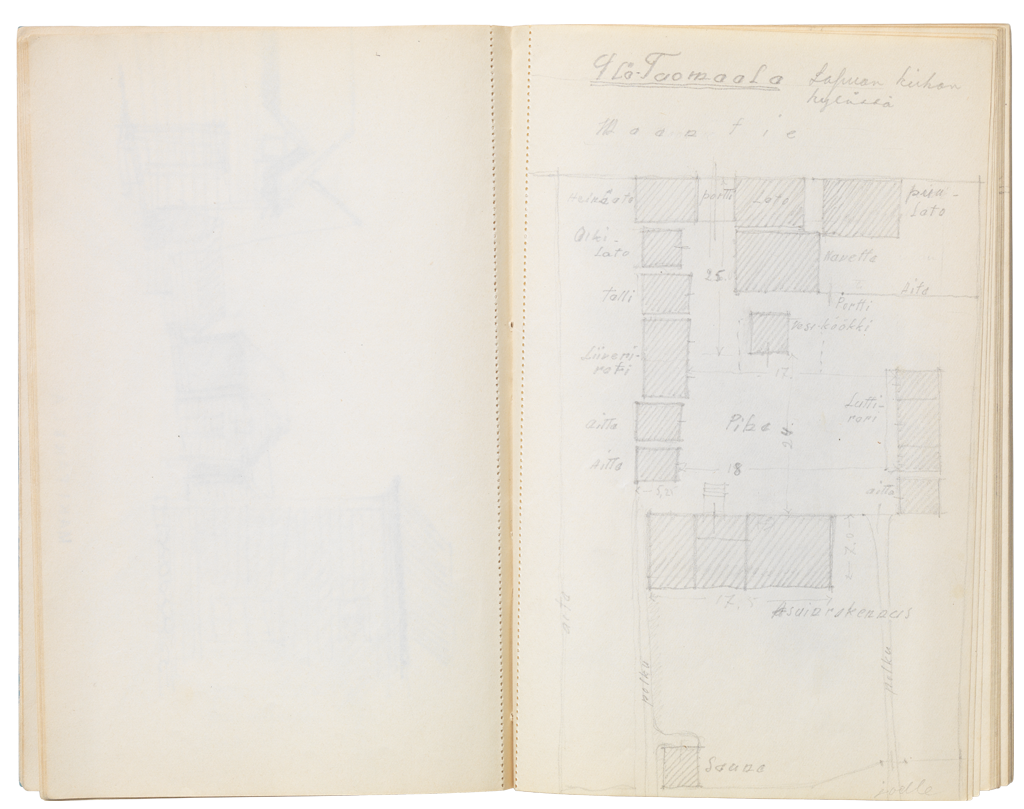 Ylä-Tuomaala Lapuan kirkon
kylässä
Maantie
Heinälato
portti
Lato
puu-
Lato
Olki-
Lato
Navetta
25
Talli
Aita
Portti
Vesikiökki
Liiveri-
rotji
17.
Lutti-
rari
aitta
Piha
24
Aitta
18
5,0
aitta
7,0
17,5
Asuinrakennus
aita
polku
polku
Sauna
joelle